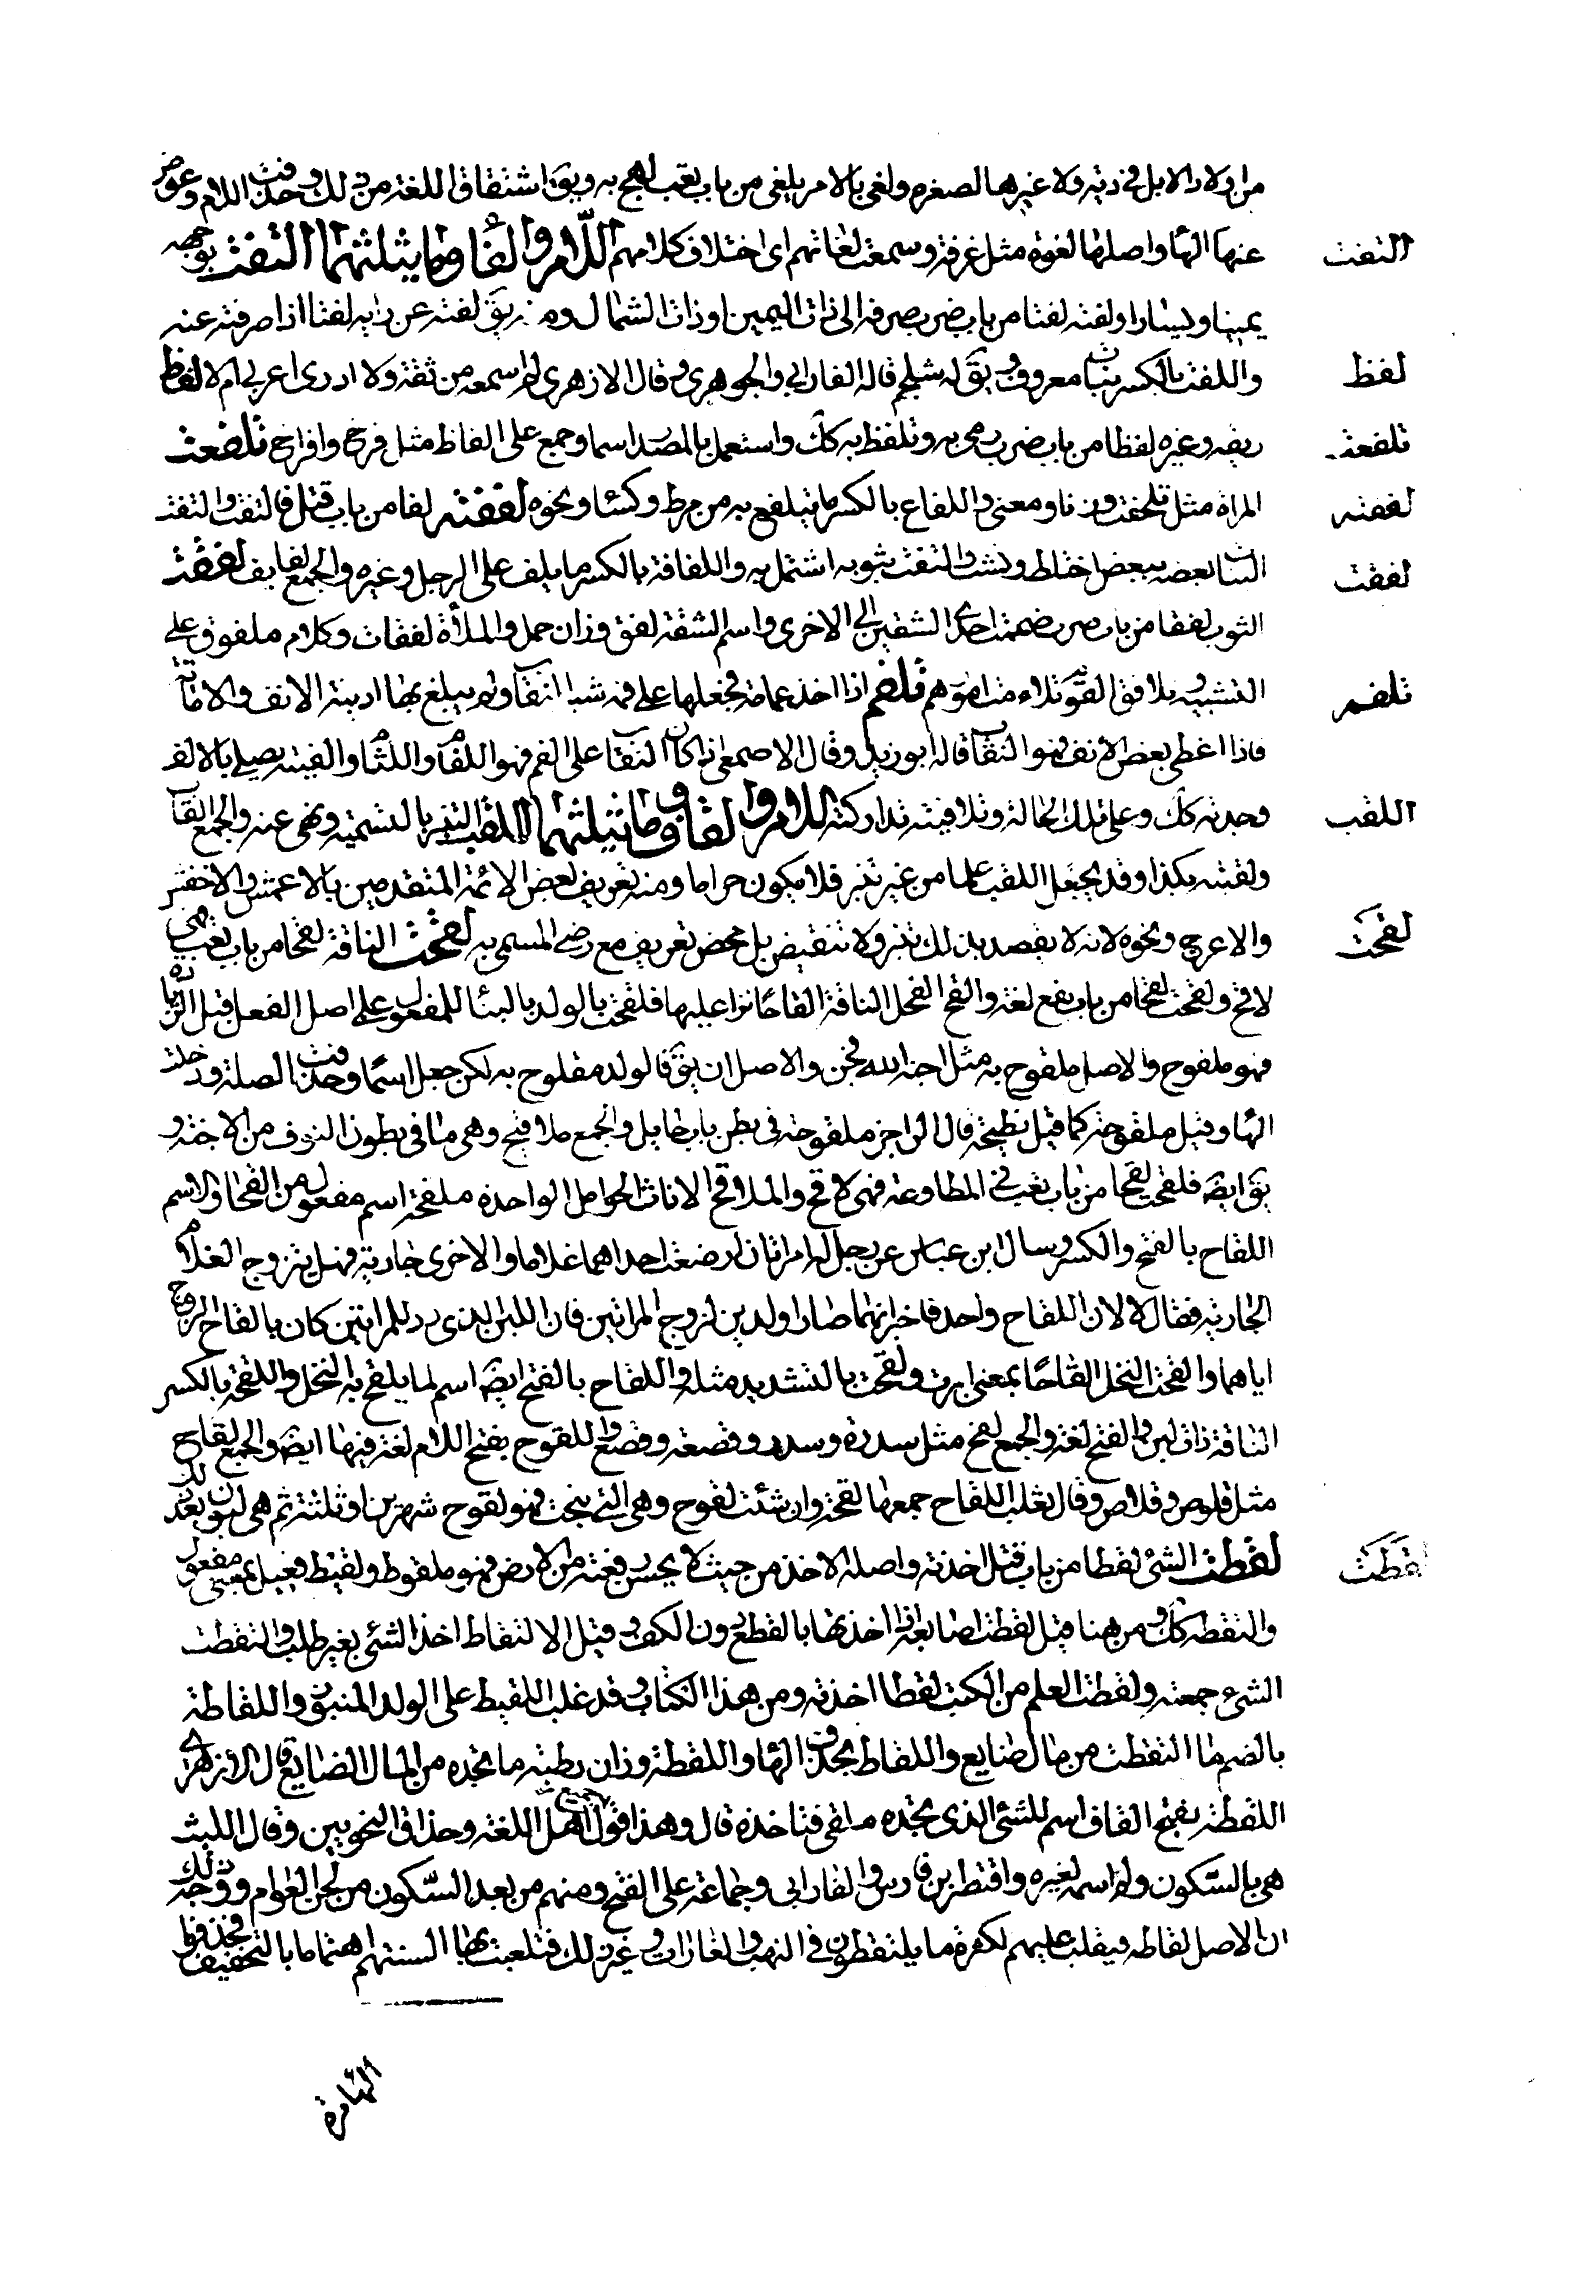 من اولاد الابل في دية ولا غيرها لصغره ولغي بالامر يلغى من باب تعب لهج به ويق اشتقاق اللغة من ذلك وحذفت اللام وعوض
التفت
عنها الهاء واصلها لغوة مثل غرفة وسمعت لغاتهم اى اختلاف كلامهم اللام والفاء وما يثلثهما التفت بوجهه
يمينا ويسارا ولفته لفتا من باب ضرب صرفه الى ذات اليمين او ذات الشمال ومنه يق لفته عن رايه لفتا اذا صرفته عنه
لفظ
واللفت بالكسر نبات معروف ويق له شلجم قاله الفارابي والجوهرى وقال الازهرى لم اسمعه من ثقة ولا ادرى اعربي ام لا لفظ
تلفعت
ريقه وغيره لفظا من باب ضرب رمى به وتلفظ به كك واستعمل بالمصدر اسما وجمع على الفاظ مثل فرخ وافراخ تلفعت
لففته
المراة مثل تلحفت وزنا ومعنى واللفاع بالكسر ما يتلفع به من مرط وكساء ونحوه لففته لفا من باب قتل فالتف والتف
لفقت
النبات بعضه ببعض اختلط ونشب والتفت بثوبه اشتمل به واللفافة بالكسر ما يلف على الرجل وغيره والجمع لفايف لفقت
الثوب لفقا من باب ضرب ضممت احدى الشقين الى الاخرى واسم الشقة لفق وزان حمل والملاة لفقان وكلام ملفوق على
تلفم
التشبيه وتلافق القوم تلاءمت امورهم تلفم اذا اخذ عمامة فجعلها على فمه شبه النقاب ولم يبلغ بها ارنبة الانف ولا مارنه
فاذا غطى بعض الانف فهو النقاب قاله ابو زيد وقال الاصمعى اذا كان النقاب على الفم فهو اللفام واللثام والفيته يصلي بالالف
اللقب
وجدته كك وعلى تلك الحالة وتلافيته تداركته اللام والقاف وما يثلثهما اللقب النبز بالتسمية ونهى عنه والجمع القاب
ولقبته بكذا وقد يجعل اللقب علما من غير نبز فلا يكون حراما ومنه تعريف بعض الائمة المتقدمين بالاعمش والاخفش
لقحت
والاعرج ونحوه لانه لا يقصد بذلك نبز ولا تنقيص بل محض تعريف مع رضى المسمى به لقحت الناقة لقحا من باب تعب فهى
لاقح ولقحت لقحا من باب نفع لغة والقح الفحل الناقة القاحا نزا عليها فلقحت بالولد بالبناء للمفعول على اصل الفعل قبل الزيادة
فهو ملقوح والاصل ملقوح به مثل اجنه الله فجن والاصل ان يق فالولد ملقوح به لكن جعل اسما وحذفت الصلة ودخلت
الهاء وقيل ملقوحة كما قيل نطيحة قال الراجز ملقوحة فى بطن ناب حايل والجمع ملاقيح وهى ما فى بطون النوق من الاجنة و
يق ايضه فلقحت لقحا من باب تعب فى المطاوعة فهى لاقح والملاقح الاناث الحوامل الواحدة ملقحة اسم مفعول من القحها والاسم
اللقاح بالفتح والكسر وسال ابن عباس عن رجل له امراتان ارضعت احداهما غلاما والاخرى جارية فهل يتزوج الغلام
الجارية فقال لا لان اللقاح واحد فاخبر انهما صارا ولدين لزوج المراتين فان اللبن الذى در للمراتين كان بالقاح الزوج
اياهما والقحت النخل القاحا بمعنى ابرت ولقحت بالتشديد مثله واللقاح بالفتح ايضه اسم لما يلقح به النخل واللقحة بالكسر
الناقة ذات لبن والفتح لغة والجمع لقح مثل سدرة وسدر وقصعة وقصع واللقوح بفتح اللام لغة فيها ايضه والجمع لقاح
مثل قلوص وقلاص وقال ثعلب اللقاح جمعها لقحة وان شئت لقوح وهى التى نتجت فهو لقوح شهرين او ثلثة ثم هى لبون بعد ذلك
لقطت
لقطت الشئ لقطا من باب قتل اخذته واصله الاخذ من حيث لا يحس رفعته من الارض فهو ملقوط ولقيط فعيل بمعنى مفعول
والتقطه كك ومن هنا قيل لقطت اصابعه اذا اخذتها بالقطع دون الكف وقيل الالتقاط اخذ الشئ بغير طلب والتقطت
الشئ جمعته ولقطت العلم من الكتب لقطا اخذته ومن هذا الكتاب وقد غلب اللقيط على الولد المنبوذ واللقاطة
بالضم ما التقطت من مال ضايع واللقاط بحذف الهاء واللقطة وزان رطبة ما تجده من المال الضايع قال الازهرى
اللقطة بفتح القاف اسم للشئ الذى تجده ملقى فتاخذه قال وهذا قول جميع اهل اللغة وحذاق النحويين وقال الليث
هى بالسكون ولم اسمه لغيره واقتصر ابن فارس والفارابى وجماعة على الفتح ومنهم من يعد السكون من لحن العوام ووجه ذلك
ان الاصل لقاطه فيقلب عليهم لكثرة ما يلتقطون فى النهب والغارات وغير ذلك فتلعبت بها السنتهم اهتماما بالتخفيف فحذفوا
الهاء مرة